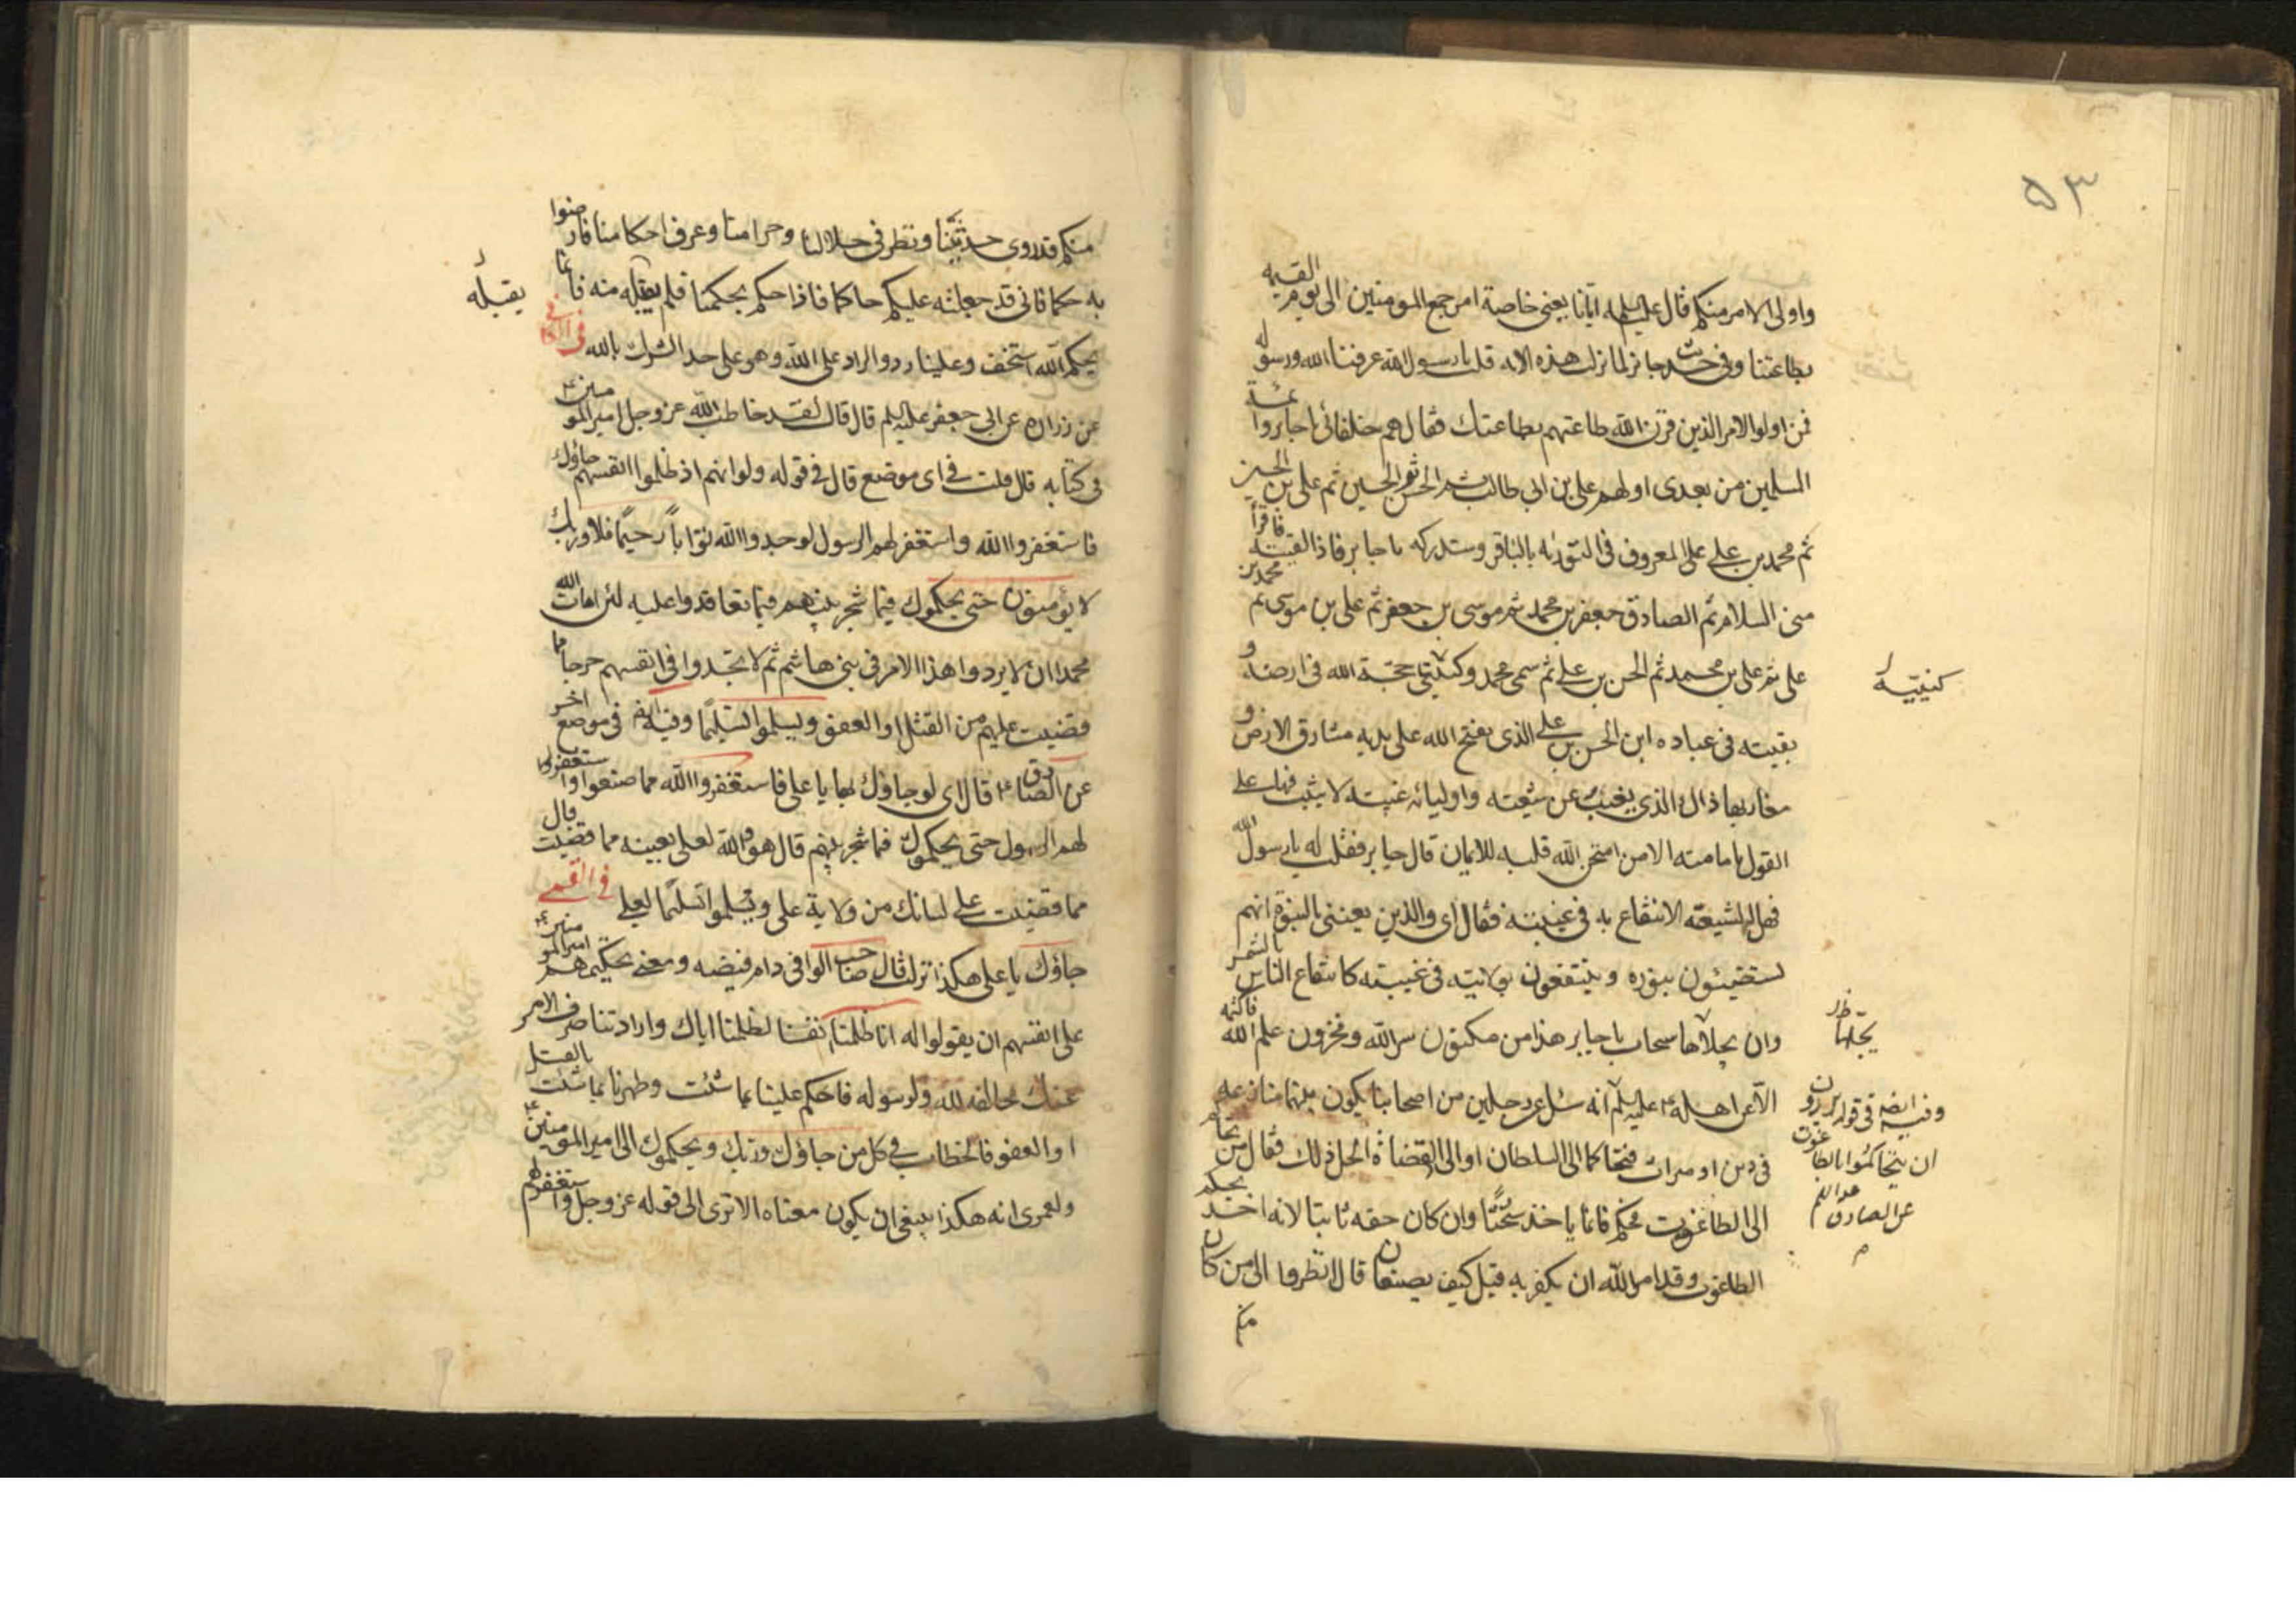 ٥٣
واولى الامر منكم قال عليه السلم ايانا يعنى خاصة امر جميع المومنين الى يوم القيمه
بطاعتنا وفى حديث جابر لما نزلت هذه الايه قلت يا رسول الله عرفنا الله ورسوله
فمن اولوا الامر الذين قرن الله طاعتهم بطاعتك فقال هم خلفائى يا جابر وائمة
المسلمين من بعدى اولهم على بن ابى طالب ثم الحسن ثم الحسين ثم على بن الحسين
ثم محمد بن على المعروف فى التورية بالباقر وستدركه يا جابر فاذا لقيته فاقرأ
منى السلام ثم الصادق جعفر بن محمد ثم موسى بن جعفر ثم على بن موسى ثم محمد بن
على ثم على بن محمد ثم الحسن بن على ثم سمى محمد وكنيتى حجة الله فى ارضه و
كنيّته
بقيته فى عباده ابن الحسن بن على الذى يفتح الله على يديه مشارق الارض و
مغاربها ذاك الذى يغيب عن شيعته واوليائه غيبته لا يثبت فيها على
القول بامامته الا من امتحن الله قلبه للايمان قال جابر فقلت له يا رسول الله
فهل لشيعته الانتفاع به فى غيبته فقال اى والذى بعثنى بالنبوة انهم
ليستضيئون بنوره وينتفعون بولايته فى غيبته كانتفاع الناس بالشمس
وان تجلاها سحاب يا جابر هذا من مكنون سر الله ومخزون علم الله فاكتمه
تجللها
الا عن اهله عليه السلم انه سئل عن رجلين من اصحابنا يكون بينهما منازعه
وفيه ايضه فى قوله يريدون
ان يتحاكموا الى الطاغوت
عن الصادق عليه السلم
فى دين او ميراث فتحاكما الى السلطان او الى القضاة ايحل ذلك فقال من تحاكم
الى الطاغوت فحكم فانما ياخذ سحتا وان كان حقه ثابتا لانه اخذ بحكم
الطاغوت وقد امر الله ان يكفر به قيل كيف يصنعان قال انظروا الى من كان
منكم
منكم قد روى حديثنا ونظر فى حلالنا وحرامنا وعرف احكامنا فارضوا
به حكما فانى قد جعلته عليكم حاكما فاذا حكم بحكمنا فلم يقبله منه فانما
يقبله
بحكم الله استخف وعلينا رد والراد على الله وهو على حد الشرك بالله فى الكافى
عن زراره عن ابى جعفر عليه السلم قال قال لقد خاطب الله عز وجل امير المومنين
فى كتابه قال قلت فى اى موضع قال فى قوله ولو انهم اذ ظلموا انفسهم جاؤك
فاستغفروا الله واستغفر لهم الرسول لوجدوا الله توابا رحيما فلا وربك
لا يؤمنون حتى يحكموك فيما شجر بينهم فيما تعاقدوا عليه لئن امات الله
محمدا ان لا يردوا هذا الامر فى بنى هاشم ثم لا يجدوا فى انفسهم حرجا مما
قضيت عليهم من القتل او العفو ويسلموا تسليما وفيه ايضه فى موضع اخر
عن الصادق قال اى لو جاؤك بها يا على فاستغفروا الله مما صنعوا واستغفر
لهم الرسول حتى يحكموك فيما شجر بينهم قال هو والله لعلى بعينه مما قضيت قال
مما قضيت على لسانك من ولاية على ويسلموا تسليما لعلى فى القمى
جاؤك يا على هكذا نزلت قال صاحب الوافى دام فيضه ومعنى تحكيمهم امير المومنين
على انفسهم ان يقولوا له انا ظلمنا انفسنا لظلمنا اياك وارادتنا صرف الامر
عنك مخالفه لله ولرسوله فاحكم علينا بما شئت وطهرنا بما شئت بالقتل
او العفو فالخطاب فى كل من جاؤك وربك ويحكموك الى امير المومنين
ولعمرى انه هكذا ينبغى ان يكون معناه الا ترى الى قوله عز وجل واستغفر لهم